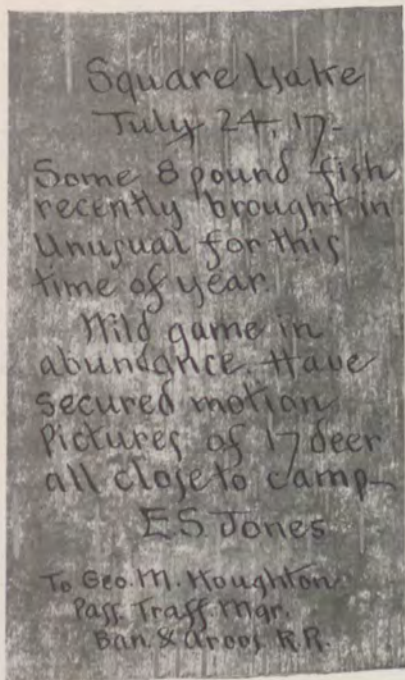 Square Lake
July 24, 17-
Some 8 pound fish
recently brought in
Unusual for this
time of year.
Wild game in
abundance. Have
secured motion
Pictures of 17 deer
all close to camp-
E.S. Jones
To Geo. M. Houghton
Pass. Traff. Mgr.
Ban. & Aroos. R.R.